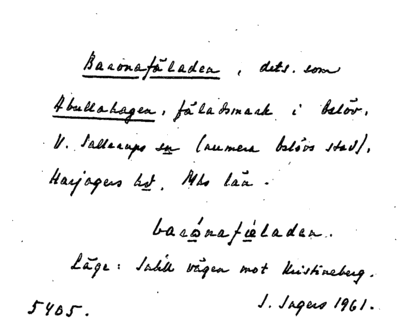 Baronafäladen, dets. som
Abullahagen, fäladsmark i Eslöv.
V. Sallerups sn (numera Eslövs stad),
Harjagers hd, Mhs län.
barónafı̣eladen.
Läge: Intill vägen mot Kristineberg.
5405. I. Ingers 1961.